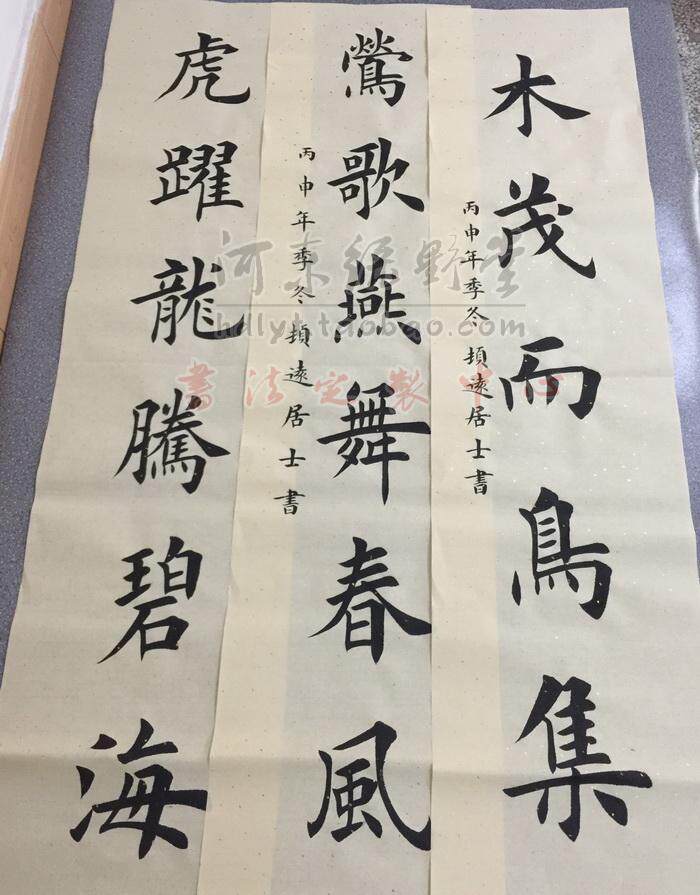 木茂而鳥集
丙申年季冬 遠居士書
鶯歌燕舞春風
丙申年季冬 遠居士書
虎躍龍騰碧海
河东绿野堂
hdlyt.taobao.com
書法定製中心